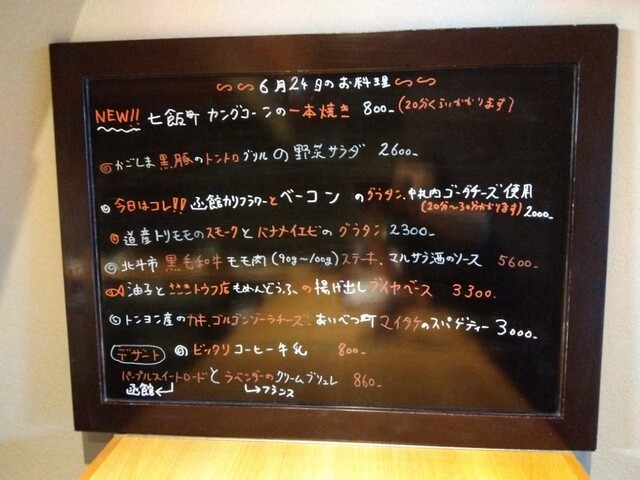 6月24日のお料理
NEW!! 七飯町 カングコーンの一本焼き 800- (20分くらいかかります)
かごしま黒豚のトントログリルの野菜サラダ 2600-
今日はコレ!! 函館カリフラワーとベーコンのグラタン、中札内ゴーダチーズ使用
(20分〜30分かかります) 2000-
道産トリモモのスモークとバナメイエビのグラタン 2300-
北斗市 黒毛和牛モモ肉(90g〜100g)ステーキ、マルサラ酒のソース 5600-
油子と トウフ店もめんどうふの揚げ出しブイヤベース 3300-
トンヨン産のカキ、ゴルゴンゾーラチーズ、あいべつ町マイタケのスパゲティー 3000-
デザート ビックリコーヒー牛乳 800-
パープルスイートロードとラベンダーのクリームブリュレ 860-
函館 フランス